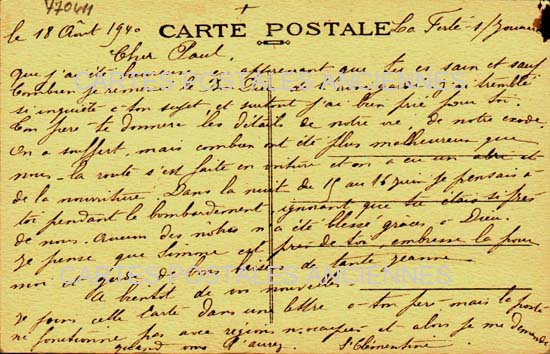 V70411
le 18 Août 1940
CARTE POSTALE
La Ferté s/Jouarre
Cher Paul,
que j'ai été heureuse en apprenant que tu es sain et sauf
Combien je remercie le Bon Dieu tremblé
inquiète à ton sujet, et surtout j'ai bien prié pour toi.
Ton père te donnera les détails de notre vie, de notre exode.
On a souffert, mais combien ont été plus malheureux que
nous. la route s'est faite en voiture et on a eu un abri et
de la nourriture. Dans la nuit du 15 au 16 juin je pensais à
toi pendant le bombardement, ignorant que tu étais si près
de nous. aucun des nôtres n'a été blessé grâces à Dieu.
Je pense que Simone est près de toi, embrasse la pour
moi et de bons baisers de tante Jeanne
A bientôt de vos nouvelles
Je joins cette Carte dans une lettre à ton père mais la poste
ne fonctionne pas avec régions occupées et alors je me demande
quand vous l'aurez. Sr Clémentine
CARTES POSTALES ANCIENNES
CARTES POSTALES ANCIENNES